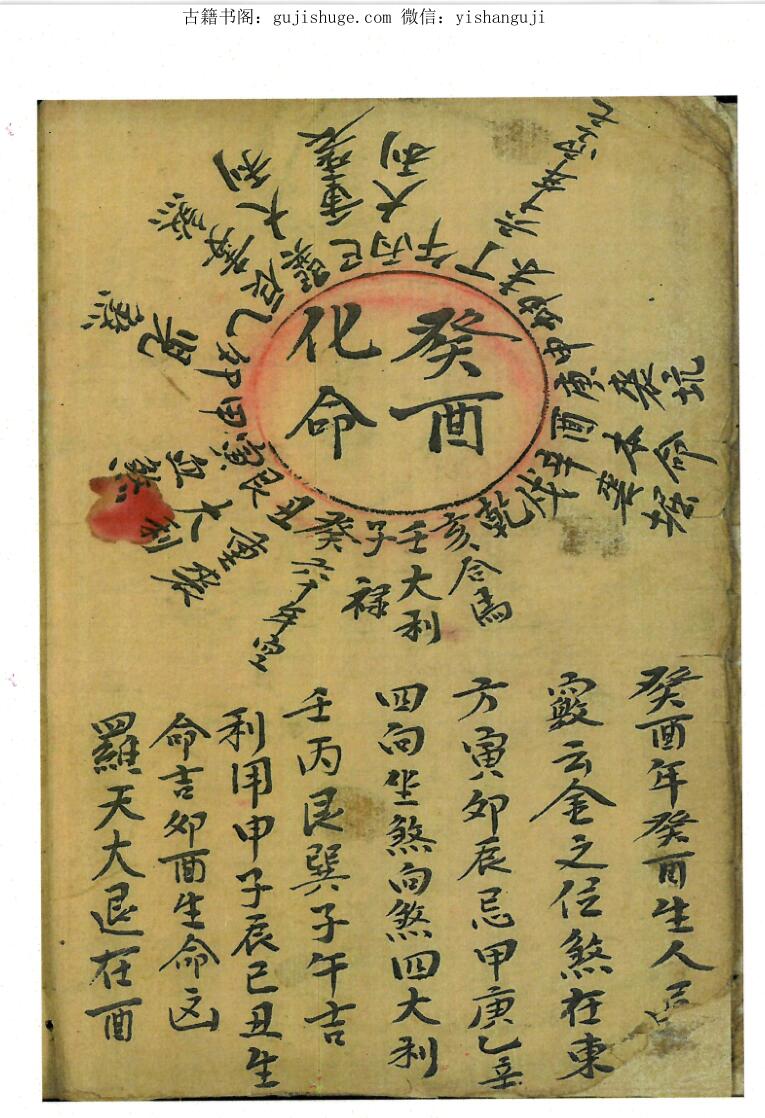 古籍书阁：gujishuge.com 微信：yishanguji
癸酉
化命
午丙巳
大利
重喪
巽
大利
辰
乙
卯
甲
寅
艮
丑
癸
子
壬
亥
乾
辛
酉
庚
申
未
丁
血
大利
六十年空
祿
大利
合馬
本命
坑
癸酉年癸酉生人忌
云金之位煞在東
方寅卯辰忌甲庚乙辛
四向坐煞向煞四大利
壬丙艮巽子午吉
利用申子辰巳丑生
命吉卯酉生命凶
羅天大退在酉